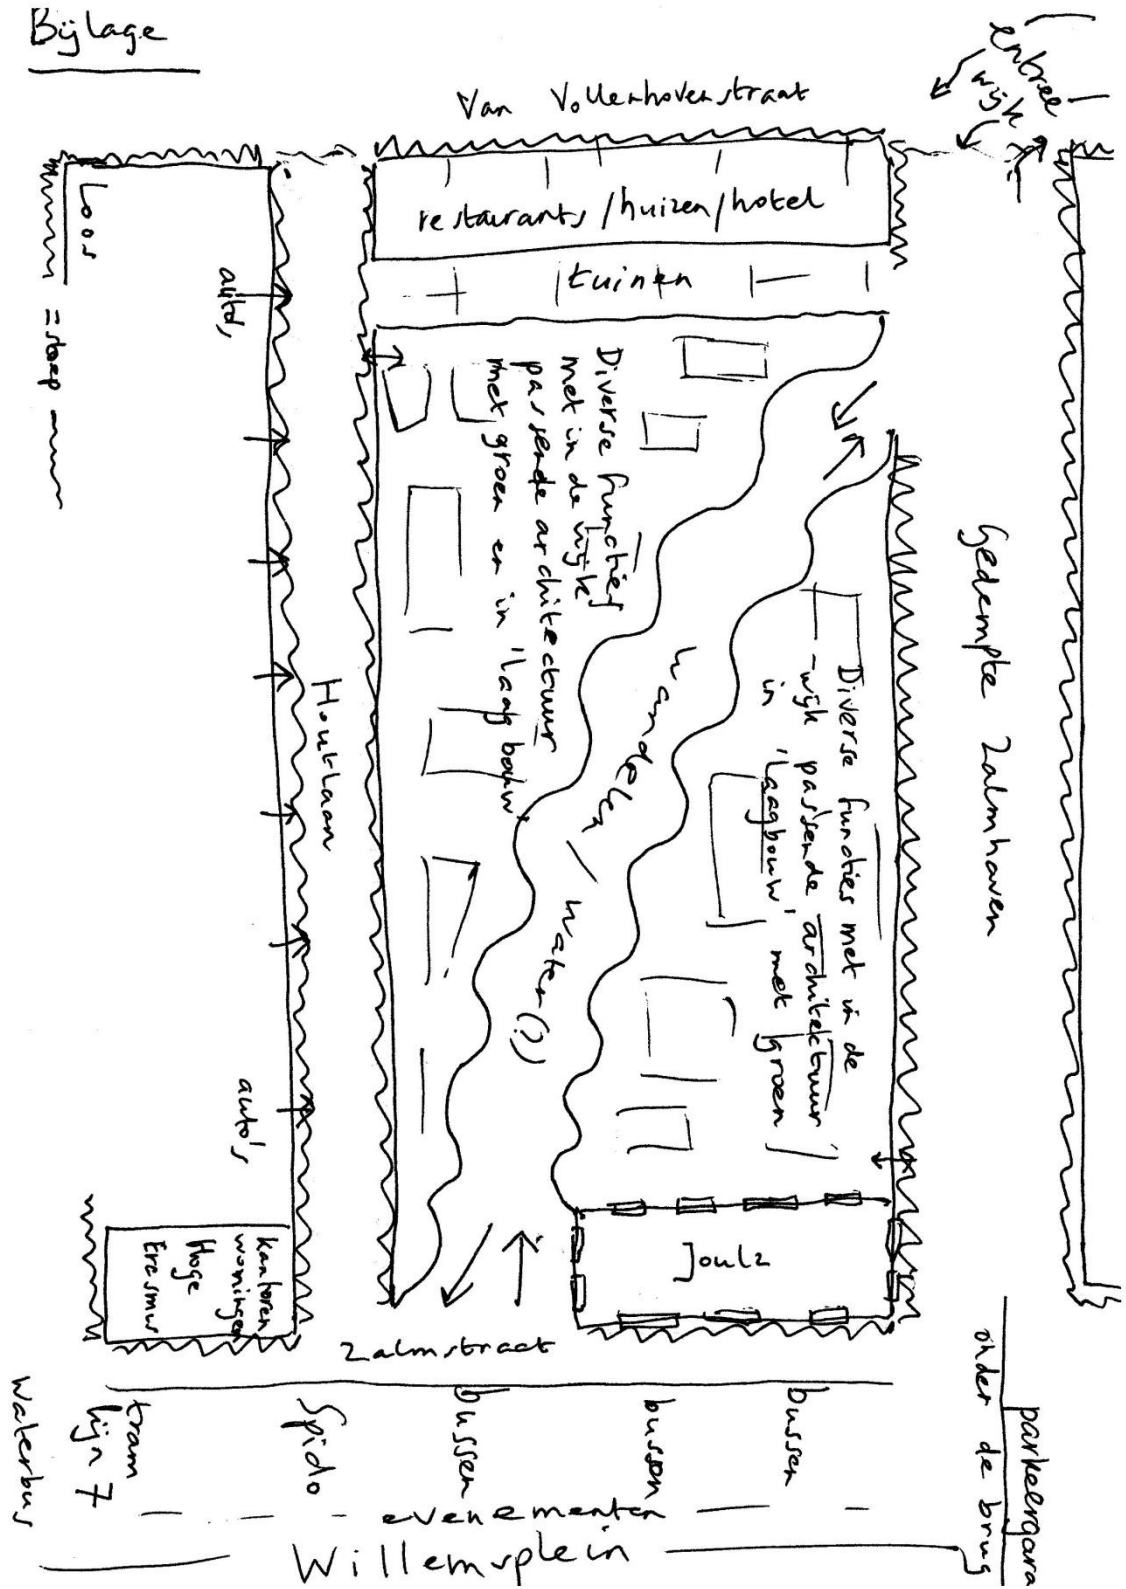 Bijlage
entree
wijk
Van Vollenhovenstraat
restaurants/huizen/hotel
tuinen
Loos
= stoep
auto's,
Diverse functies
met in de wijk
passende architectuur
met groen en in 'laagbouw'
Houtlaan
wandelen / water(?)
Diverse functies met in de
wijk passende architektuur
in 'laagbouw' met groen
Gedempte Zalmhaven
auto's,
kantoren
woningen
Hoge
Erasmus
Joulz
Zalmstraat
Waterbus
tram
lijn 7
Spido
bussen
bussen
bussen
parkeergara
onder de brug
evenementen
Willemsplein